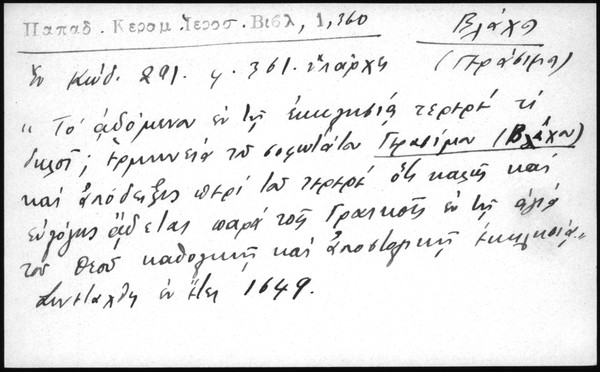 Παπαδ. Κεραμ. Ἱεροσ. Βιβλ, 1,360 Βλάχου
Ἐν Κώδ. 291. φ. 361. ὑπάρχει (Γεράσιμου)
"Τὸ ᾀδόμενον ἐν τῇ ἐκκλησίᾳ τερερὲ τί
δηλοῖ; ἑρμηνεία τοῦ σοφωτάτου Γερασίμου (Βλάχου)
καὶ ἀπόδειξις περὶ τοῦ τερερὲ ὅτι καλῶς καὶ
εὐλόγως ᾄδεται παρὰ τοῖς Γραικοῖς ἐν τῇ ἁγίᾳ
τοῦ Θεοῦ καθολικῇ καὶ ἀποστολικῇ ἐκκλησίᾳ."
Συνετάχθη ἐν ἔτει 1649.